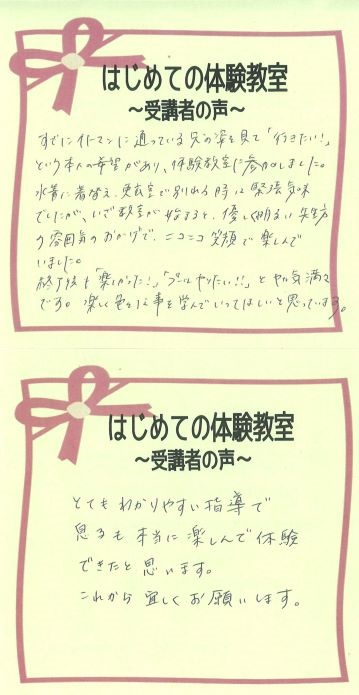 はじめての体験教室
～受講者の声～
すでにイトマンに通っている兄の姿を見て「行きたい!」
という本人の希望があり、体験教室に参加しました。
水着に着替え、更衣室で別れる時は緊張気味
でしたが、いざ教室が始まると、優しく明るい先生方
の雰囲気のおかげで、ニコニコ笑顔で楽しんで
いました。
終了後も「楽しかった!」「プールやりたい!!」とやる気満々
です。楽しく色々な事を学んでいってほしいと思っています。
はじめての体験教室
～受講者の声～
とてもわかりやすい指導で
息子も本当に楽しんで体験
できたと思います。
これから宜しくお願いします。